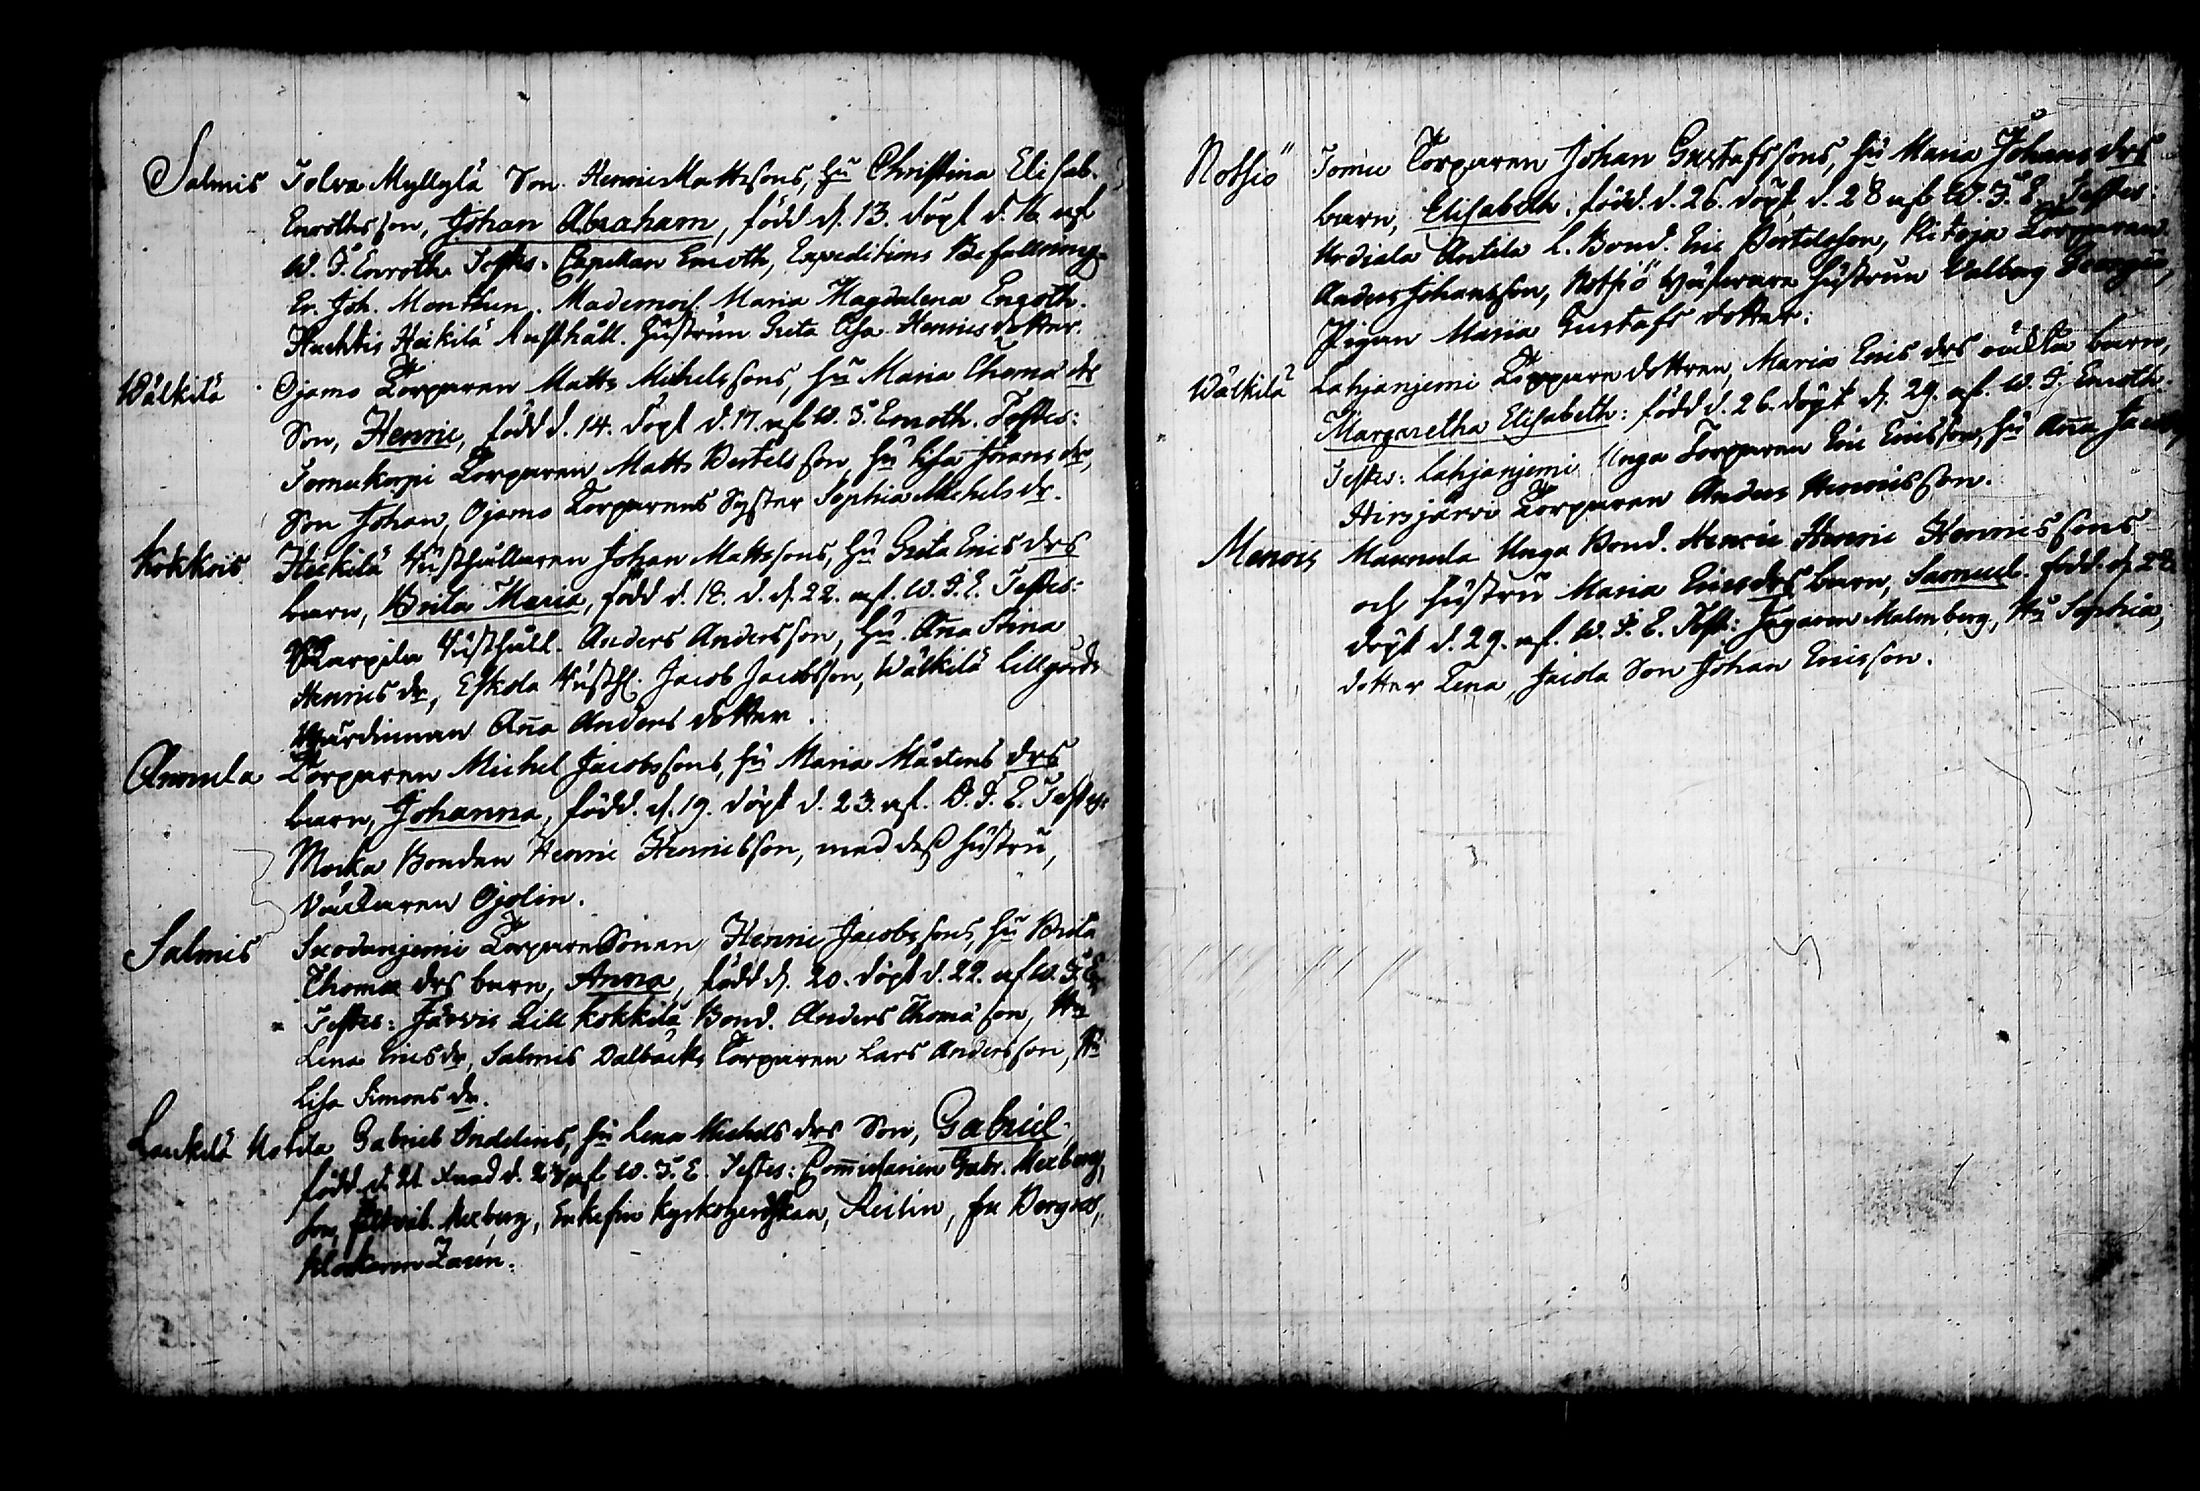 Salmis Tolva Myllylä Son Henric Mattssons, hu Christina Elisab.
Enroths son, Johan Abraham, född d. 13. döpt d. 16 af
W. F. Enroth. Testes: Capellan Enroth, Expeditions Befallning
Er. Joh. Monthen. Mademois. Maria Magdalena Enroth.
Huchtis Heikilä Rusthåll. Hustrun Greta Lisa Henricsdotter.
Wälkilä Ojamo Torparen Matts Michelssons, hu Maria Thomædrs
Son, Henric, född d. 14. döpt d. 17. af W. F. Enroth. Testes:
Tomukorpi Torparen Matts Bertelsson, hu Lisa Johansdr,
Son Johan, Ojamo Torparens Syster Sophia Michelsdr.
Kokkois Heikilä Rusthållaren Johan Mattssons, hu Greta Ericsdrs
barn, Brita Maria, född d. 18. d. d. 22. af. W. F. E. Testes:
Karpila Rusthåll. Anders Andersson, Hu. Aña Stina
Henricsdr, Eskola Rusth. Jacob Jacobsson, Wälkilä Lillgårds
Wärdinnan Aña Andersdotter.
Anomela Torparen Michel Jacobssons, hu Maria Mårtens drs
barn, Johanna, född. d. 19. döpt d. 23. af. W. F. E. Testes
Mocka Bonden Henric Henricsson, med dess hustru,
Väckaren Ojolin.
Salmis Torpare Sonen Henric Jacobssons, hu Brita
Thomæ drs barn, Anna, född d. 20. döpt d. 22. af W. F. E.
Testes: Järvis Lill Kokkila Bond. Anders Thomæson, Hu
Lena Ericsdr, Salmis Dalbacks Torparen Lars Andersson, Hu
Lisa Simonsdr.
Laukilä Gabriel Indelins, hu Lena Michels drs Son, Gabriel,
född d. 21 d. af W. F. E. Testes: Com̃issarien Gabr. Mexberg,
Mexberg, Enkefru Kyrkoherdskan, Reilin, fru Bergroos,
Klockaren Zacen.
Rotsiö Tomu Torparen Johan Gustafssons, hu Maria Johansdrs
barn, Elisabeth, född. d. 26. döpt d. 28 af W. F. E. Testes:
Urdiala Antila L. Bond. Eric Bertelsson, Torparen
Anders Johansson, Rotsiö hustrun Valborg
Pigan Maria Gustafs dotter.
Wälkilä Lahjanjemi Torparedottren, Maria Erics drs oäckta barn,
Margaretha Elisabeth: född d. 26. döpt d. 29. af. W. F. Enroth.
Testes: Lahjanjemi Unga Torparen Eric Ericsson, hu Aña
Hirsjärvi Torparen Anders Henricsson.
Menois Maunula Unga Bond. Henric Henricssons
och hustru Maria Ericsdrs barn, Samuel. född. d. 28
döpt d. 29. af. W. F. E. Test: Jägaren Malmberg, Hu Sophia,
dotter Lena, Jacola Son Johan Ericsson.